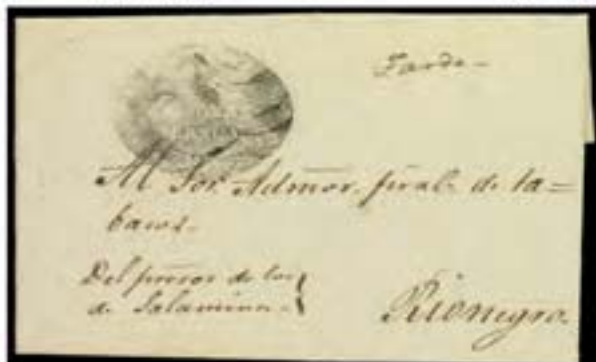 Tarde –
Al Sor. Admor. pral. de ta=
bacos.
Del de los
de Salamina.
Rionegro.